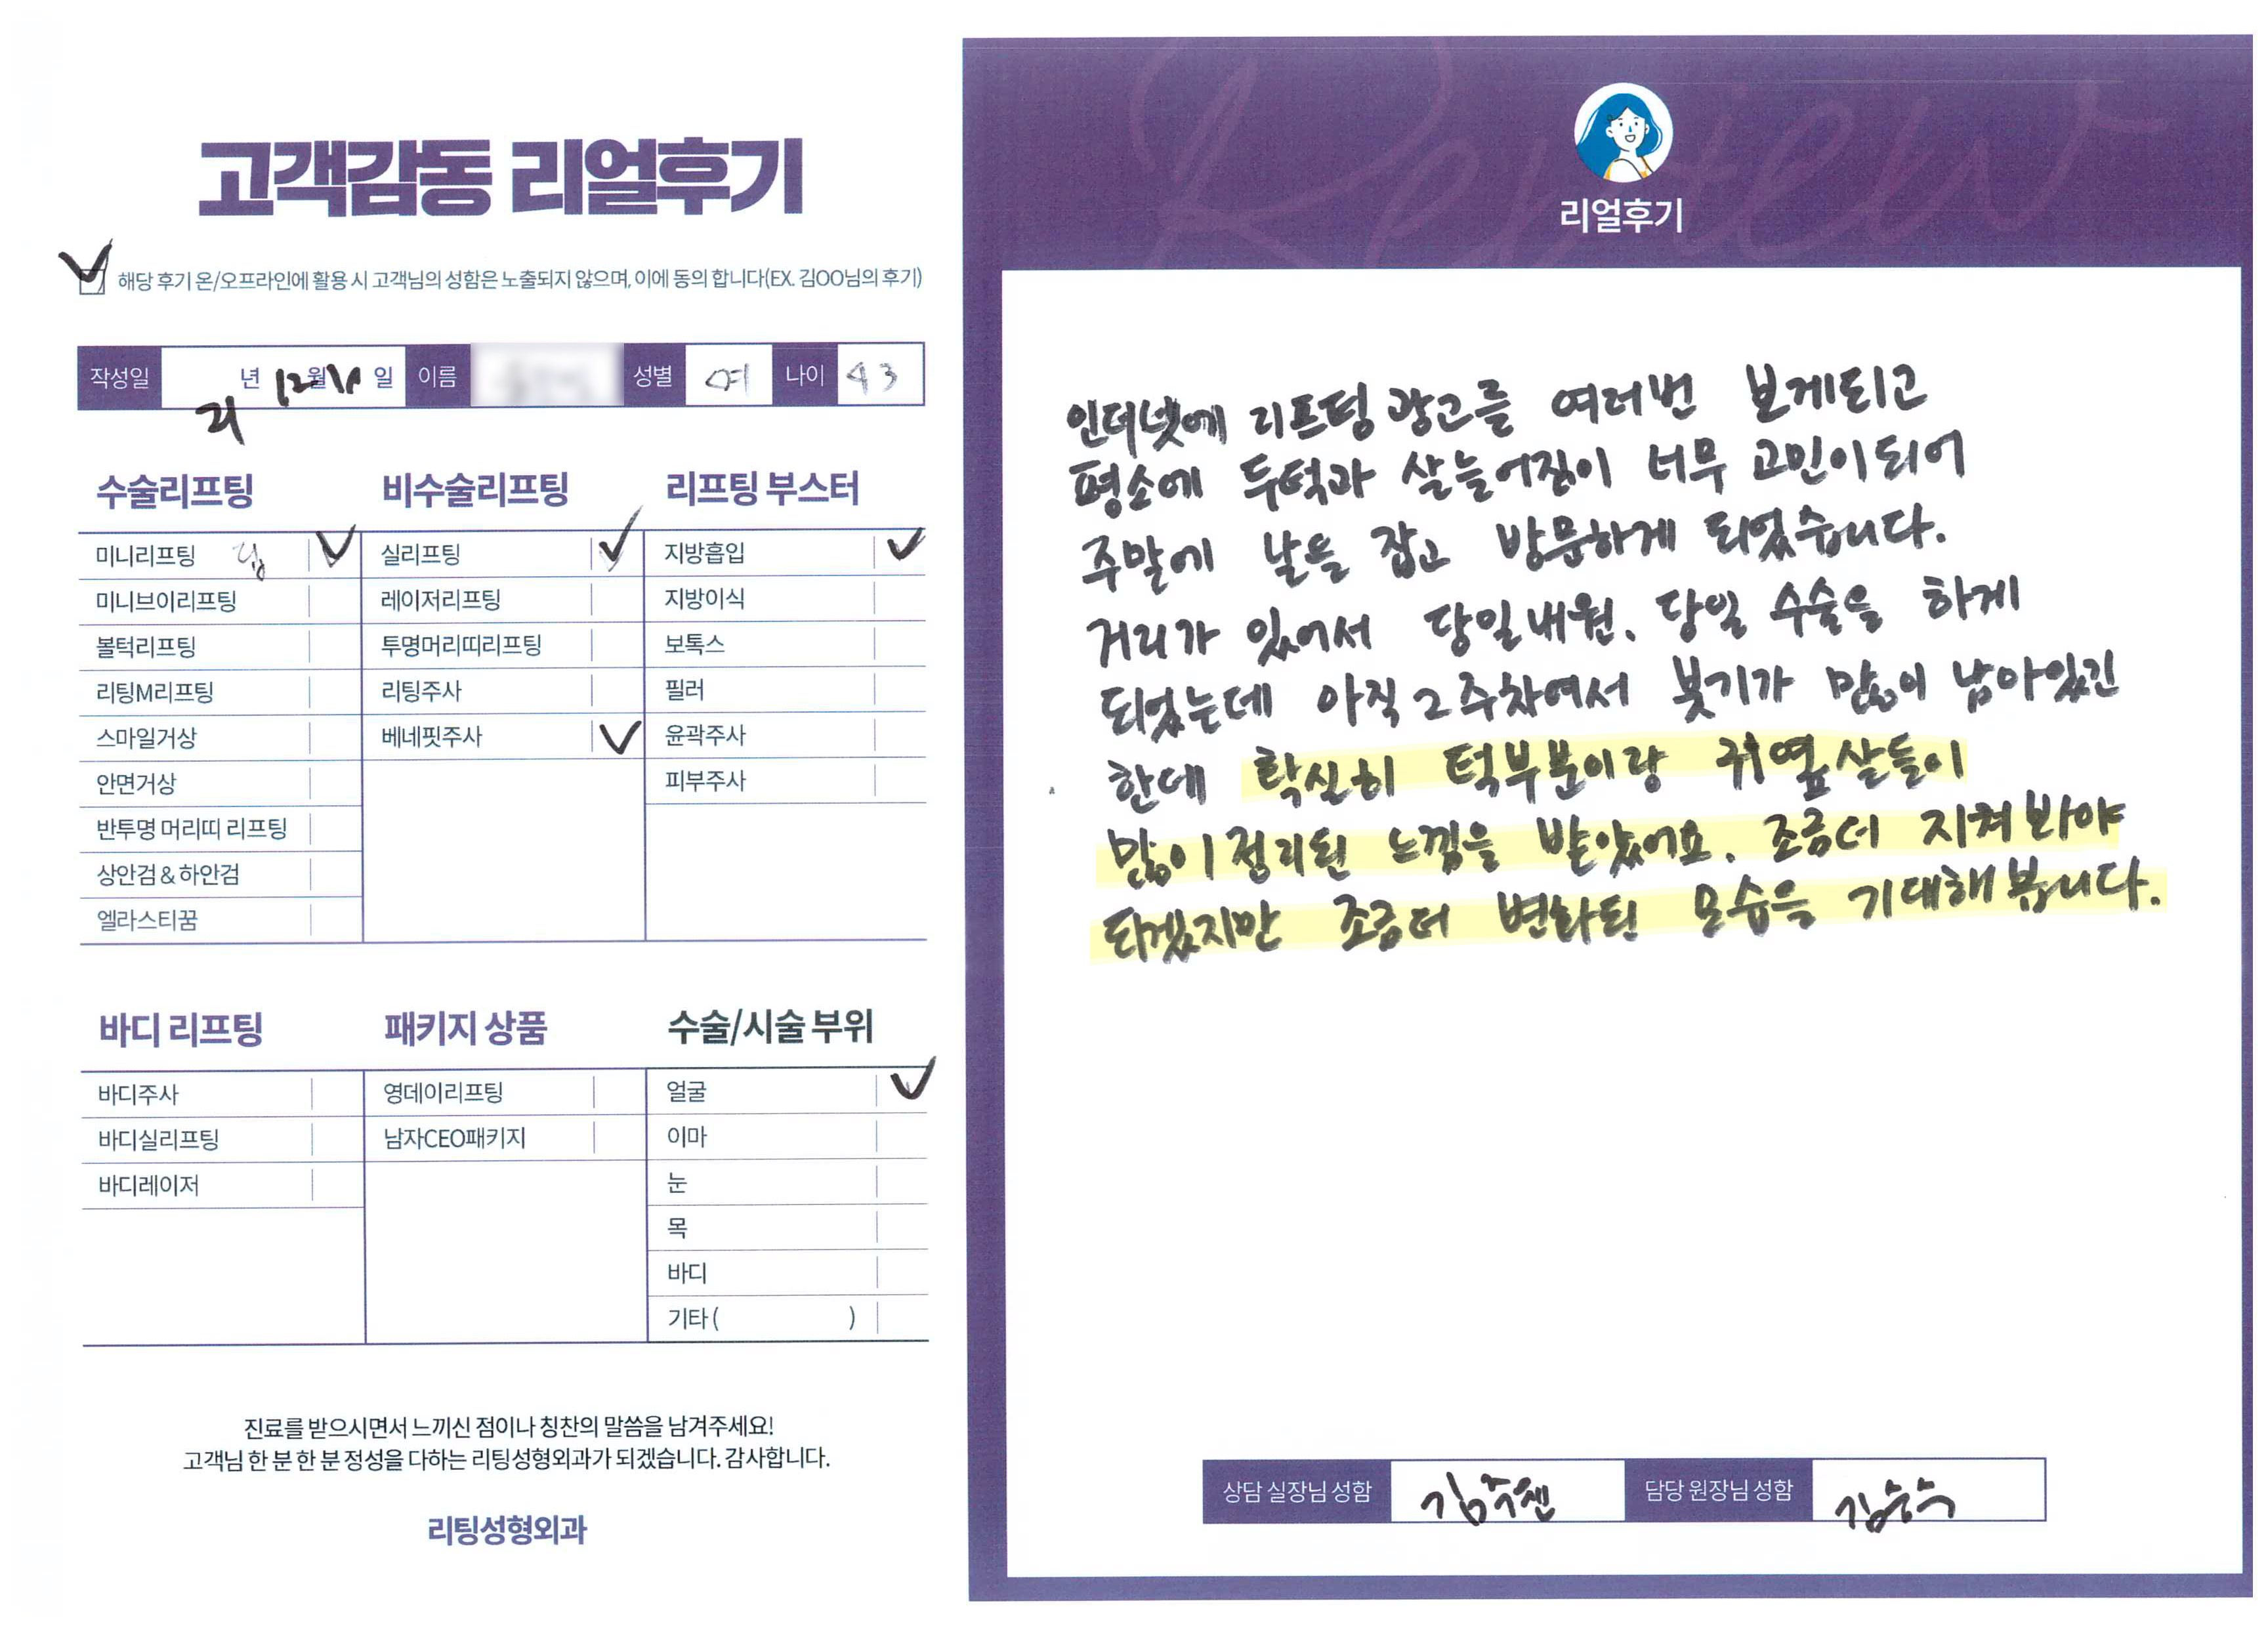 고객감동 리얼후기
해당 후기 온/오프라인에 활용 시 고객님의 성함은 노출되지 않으며, 이에 동의 합니다(EX. 김OO님의 후기)
작성일 년 12월 일 이름 성별 여 나이 43
수술리프팅
미니리프팅
미니브이리프팅
볼턱리프팅
리팅M리프팅
스마일거상
안면거상
반투명 머리띠 리프팅
상안검 & 하안검
엘라스티꿈
비수술리프팅
실리프팅
레이저리프팅
투명머리띠리프팅
리팅주사
베네핏주사
리프팅 부스터
지방흡입
지방이식
보톡스
필러
윤곽주사
피부주사
바디 리프팅
바디주사
바디실리프팅
바디레이저
패키지 상품
영데이리프팅
남자CEO패키지
수술/시술 부위
얼굴
이마
눈
목
바디
기타 ( )
진료를 받으시면서 느끼신 점이나 칭찬의 말씀을 남겨주세요!
고객님 한 분 한 분 정성을 다하는 리팅성형외과가 되겠습니다. 감사합니다.
리팅성형외과
Review
리얼후기
인터넷에 리프팅 광고를 여러번 보게되고
평소에 두턱과 살늘어짐이 너무 고민이되어
주말에 날을 잡고 방문하게 되었습니다.
거리가 있어서 당일내원. 당일 수술을 하게
되었는데 아직 2주차여서 붓기가 많이 남아있긴
한데 확실히 턱부분이랑 귀옆살들이
많이 정리된 느낌을 받았어요. 조금더 지켜봐야
되겠지만 조금더 변화된 모습을 기대해봅니다.
상담 실장님 성함 담당 원장님 성함